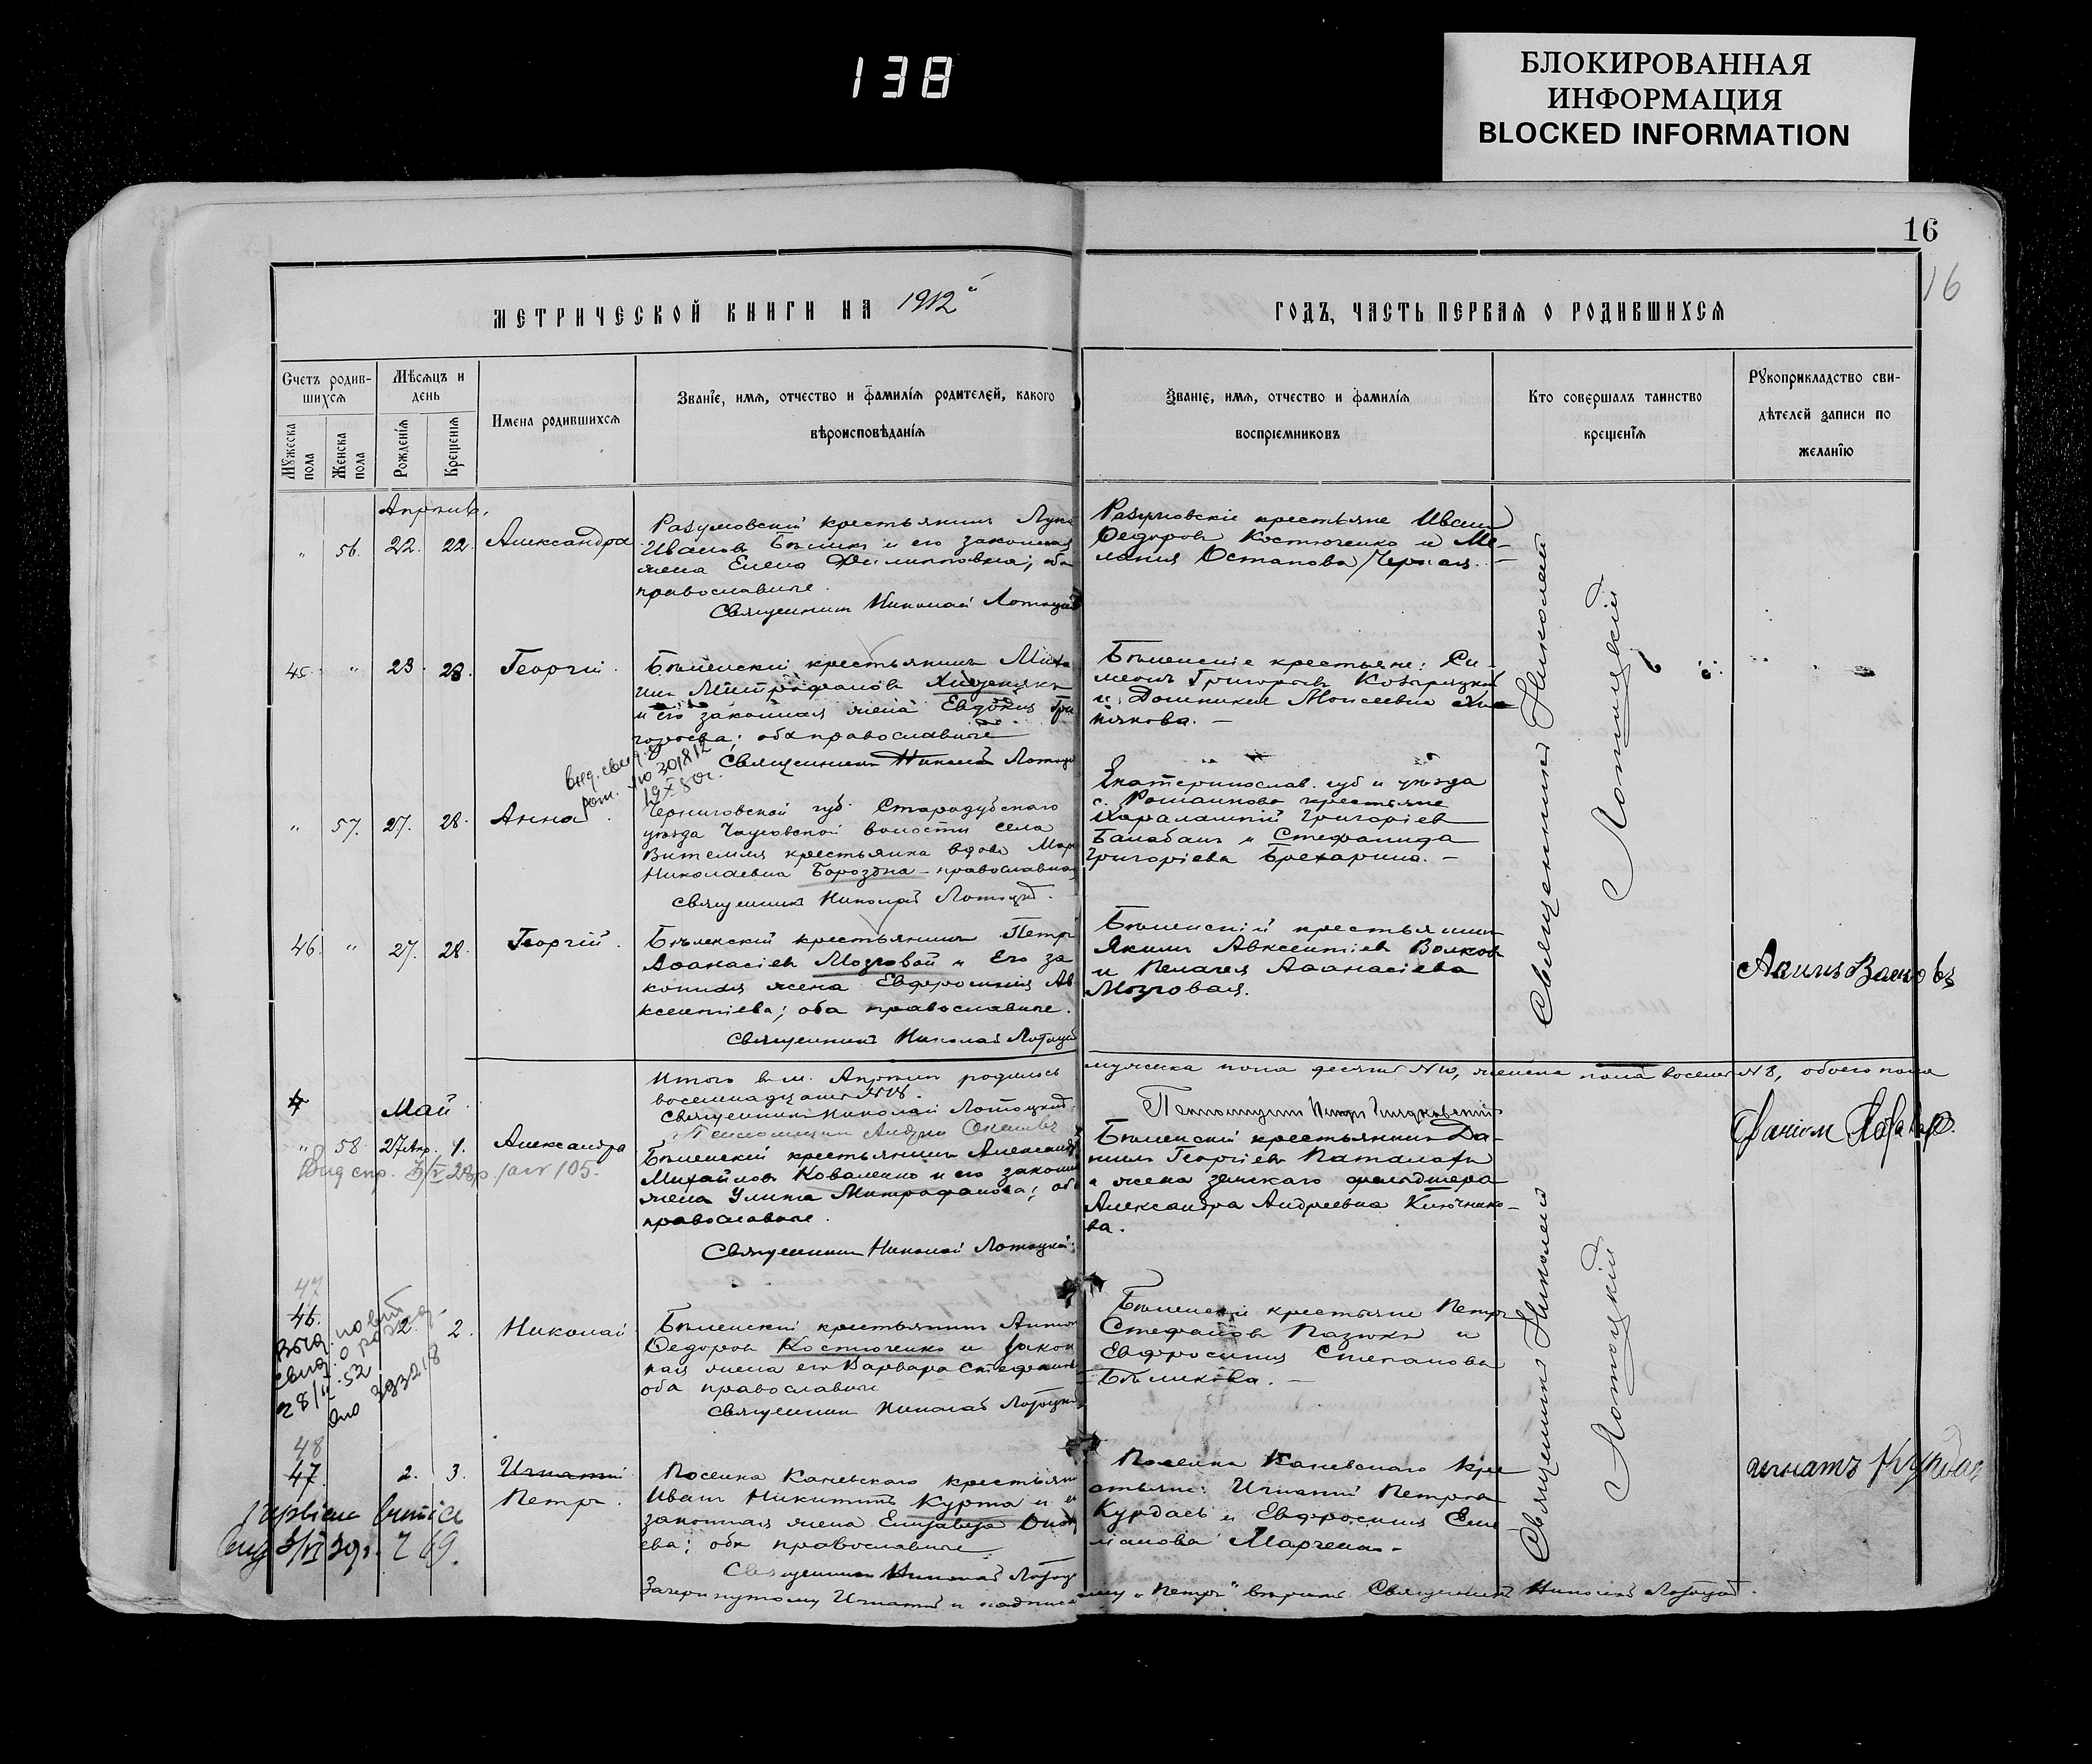 138
БЛОКИРОВАННАЯ
ИНФОРМАЦИЯ
BLOCKED INFORMATION
16
16
МЕТРИЧЕСКОЙ КНИГИ НА 1912й
ГОДЪ, ЧАСТЬ ПЕРВАЯ О РОДИВШИХСЯ
Счетъ родив-
шихся
Мужеска
пола
Женска
пола
Мѣсяцъ и
день
Рожденія
Крещенія
Имена родившихся
Званіе, имя, отчество и фамилія родителей, какого
вѣроисповѣданія
Званіе, имя, отчество и фамилія
воспріемниковъ
Кто совершалъ таинство
крещенія
Рукоприкладство сви-
дѣтелей записи по
желанію
Апрѣль.
" 56. 22. 22. Александра
Разумовскій крестьянинъ Лука
Ивановъ Бѣликъ и его законная
жена Елена Филипповна; оба
православные.
Священникъ Николай Лотоцкій
Разумовскіе крестьяне Иванъ
Ѳедоровъ Костюченко и Ме-
ланія Остапова Черная. –
45. " 23. 23. Георгій.
Бѣленскій крестьянинъ Миха
илъ Митрофановъ
и его законная жена Евдокія Гри
горьева; оба православные
Священникъ Николай Лотоцкій
Бѣленскіе крестьяне: Си-
меонъ Григорьевъ
и Домникія Моисеевна
" 57. 27. 28. Анна.
Черниговской губ. Стародубскаго
уѣзда волости села
крестьянка вдова
Николаевна Бороздна – православная
Священникъ Николай Лотоцкій.
Екатеринослав. губ и уѣзда
с. Романкова крестьяне
Харалампій Григорьевъ
Балабанъ и Стефанида
Григорьева –
46. " 27. 28. Георгій.
Бѣленскій крестьянинъ Петръ
Аѳанасіевъ Мозговой и его за
конная жена Евфросинія Ав
ксентіева; оба православные.
Священникъ Николай Лотоцкій
Бѣленскій крестьянинъ
Якимъ Авксентіевъ Волковъ
и Пелагея Аѳанасіева
Мозговая.
Священникъ Николай
Лотоцкій
Итого въ м. Апрѣлѣ родилось мужеска пола десять №10, женска пола восемь №8, обоего пола
восемнадцать №18.
Священникъ Николай Лотоцкій.
Май
" 58 27 Апр. 1. Александра
Бѣленскій крестьянинъ Александръ
Михайловъ Коваленко и его законная
жена Улита Митрофанова; оба
православные.
Священникъ Николай Лотоцкій.
Бѣленскій крестьянинъ Да-
ніилъ Георгіевъ
и жена земскаго фельдшера
Александра Андреевна Ключнико-
ва.
47
46. 2. 2. Николай
28/II.52
Бѣленскій крестьянинъ Антонъ
Ѳедоровъ Костюченко и закон
ная жена его Варвара Стефанова
оба православные
Священникъ Николай Лотоцкій
Бѣленскіе крестьяне Петръ
Стефановъ Пазюкъ и
Евфросинія Степанова
Бѣликова. –
48
47. 2. 3. Игнатій
Петръ.
Поселка Каневскаго крестьянинъ
Иванъ Никитинъ Курта и его
законная жена Елизавета
ева; оба православные
Священникъ Николай Лотоцкій
Поселка Каневскаго кре
стьяне: Игнатій Петровъ
Курдаевъ и Евфросинія Еме
ліанова Марченко –
Игнатъ Курдаев
Священникъ Николай
Лотоцкій
Зачеркнутому Игнатій и надписанному "Петръ" вѣрить. Священникъ Николай Лотоцкій.